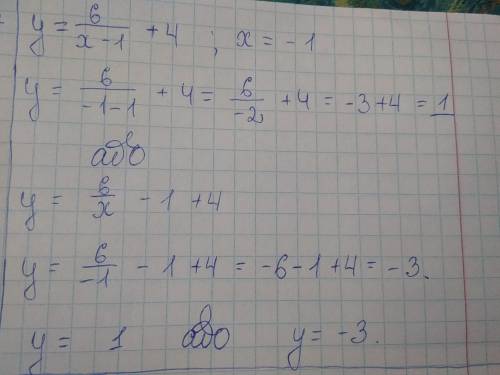 y = 6/(x-1) + 4 ; x = -1
y = 6/(-1-1) + 4 = 6/-2 + 4 = -3+4 = 1
або
y = 6/x - 1 + 4
y = 6/-1 - 1 + 4 = -6-1+4 = -3.
y = 1 або y = -3.